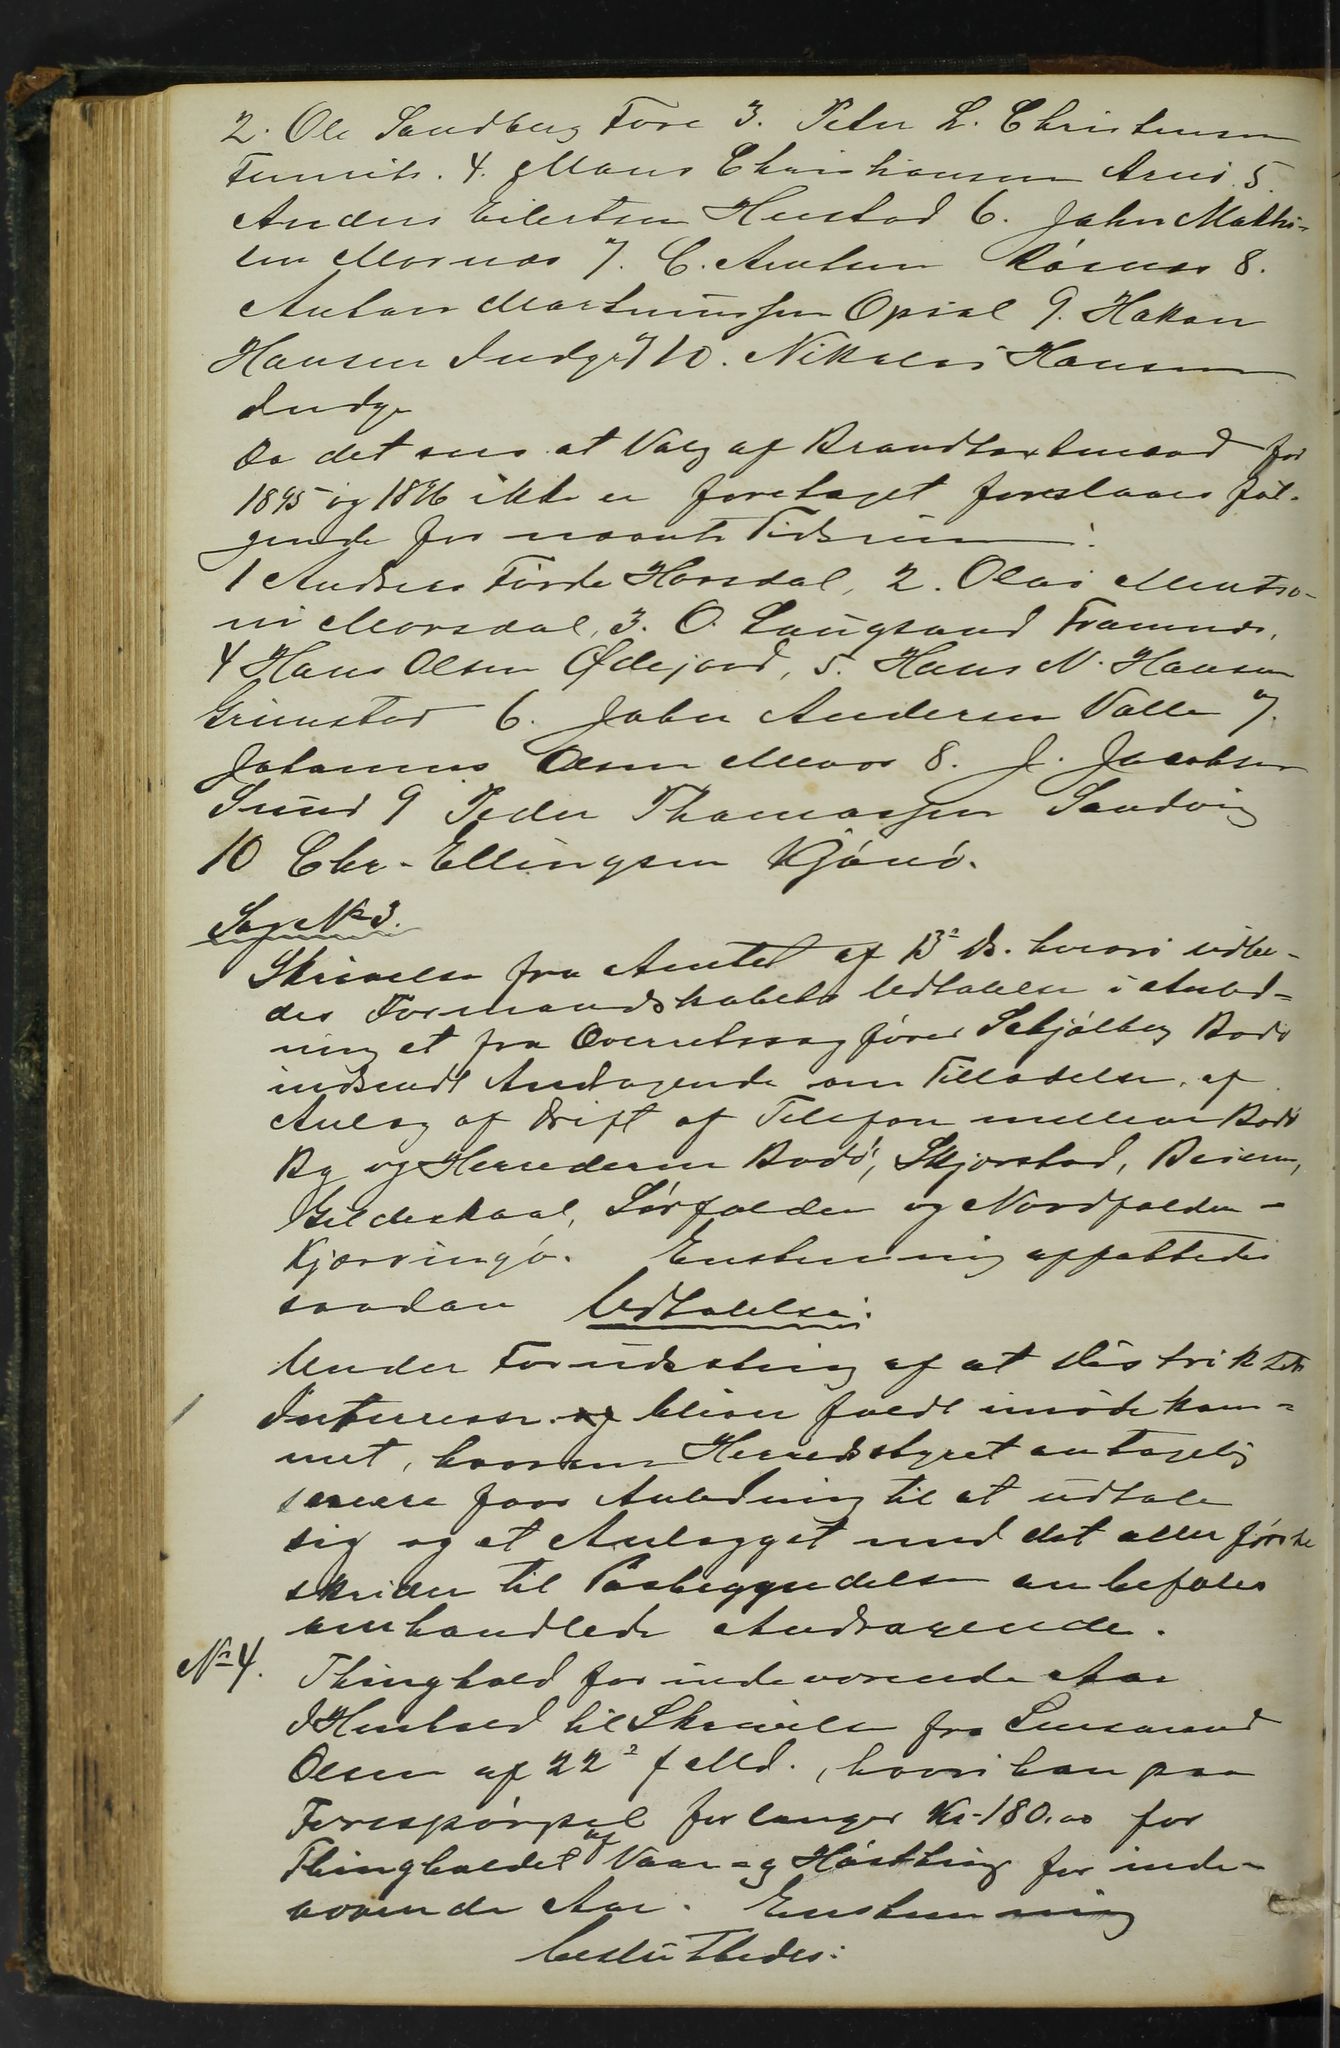 2. Ole Sandberg Fore 3. Peter L. Christensen
Fumits. 4. Mons Christiansen Arnö. 5.
Anders Eilertsen Hustad 6. John Mathi-
sen Mornæs 7. C. Arntsen Rösnæs 8.
Anton Martinussen Opsal 9. Hakon
Hansen Indyr 10. Nikolai Hansen
Indyr
Da det sees at Valg af Brandtaxtmænd for
1895 og 1896 ikke er foretaget foreslaaes föl-
gende for nævnte Tidsrum:
1 Andreas Förde Horsdal, 2. Olai Mentso-
ni Morsdal, 3. O. Laugsand Framnæs,
4 Hans Olsen Ødejord, 5. Hans N. Hansen
Grimstad 6. John Andersen Valle 7.
Johannes Olsen Mevær 8. J. Jacobsen
Sund 9 Peder Thomassen Sandvig
10 Chr. Ellingsen Kjönö.
Sag No 3.
Skrivelse fra Amtet af 13de Ds. hvori udbe-
des Formandskabets Udtalelse i Anled-
ning et fra Overretssagförer Schjölberg Bodö
indsendt Andragende om Tilladelse af
Anlæg af Drift af Telefon mellem Bodö
By og Herrederne Bodö, Skjerstad, Beieren,
Gildeskaal, Sörfolden og Nordfolden -
Kjærringö. Enstemmig affattedes
saadan Udtalelse:
Under Forudsætning af at Distriktets
Interesser bliver fuldt imödekom-
met, hvorom Herredsstyret antagelig
senere faar Anledning til at udtale
sig og at Anlægget med det aller förste
skrider til Paabegyndelse anbefales
omhandlede Andragende.
No 4. Thinghold for indeværende Aar
I Henhold til Skrivelse fra Lensmand
Olsen af 22de f Md., hvori han paa
Forespörgsel forlanger Kr. 180.00 for
Thingholdet af Vaar- og Höstthing for inde-
værende Aar. Enstemmig
besluttedes: